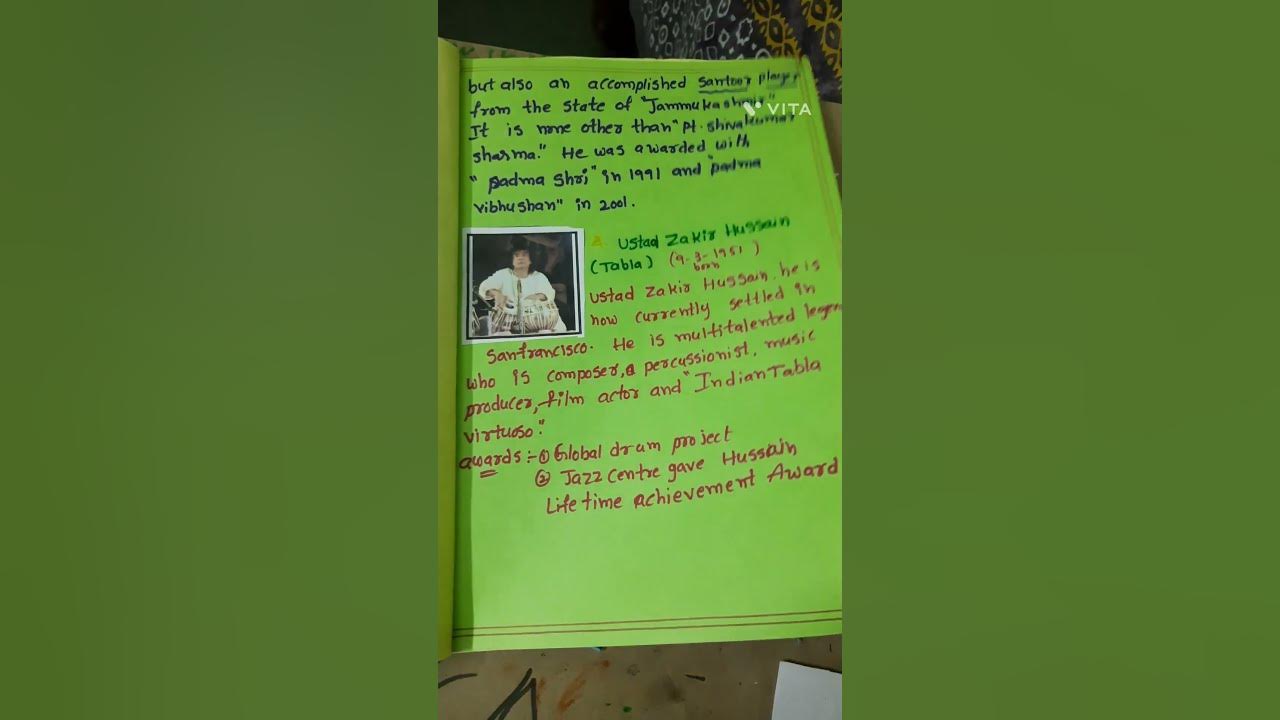 but also an accomplished santoor player
from the state of "Jammukashmir"
VITA
It is none other than "pt. shivakumar
sharma." He was awarded with
" padma shri" in 1991 and "padma
vibhushan" in 2001.
2. Ustad Zakir Hussain
(Tabla) (9-3-1951)
born
Ustad Zakir Hussain. he is
now currently settled in
Sanfrancisco. He is multitalented legen
who is composer, a percussionist, music
producer, film actor and "Indian Tabla
virtuoso."
awards :- ① Global drum project
② Jazz Centre gave Hussain
Life time achievement Award